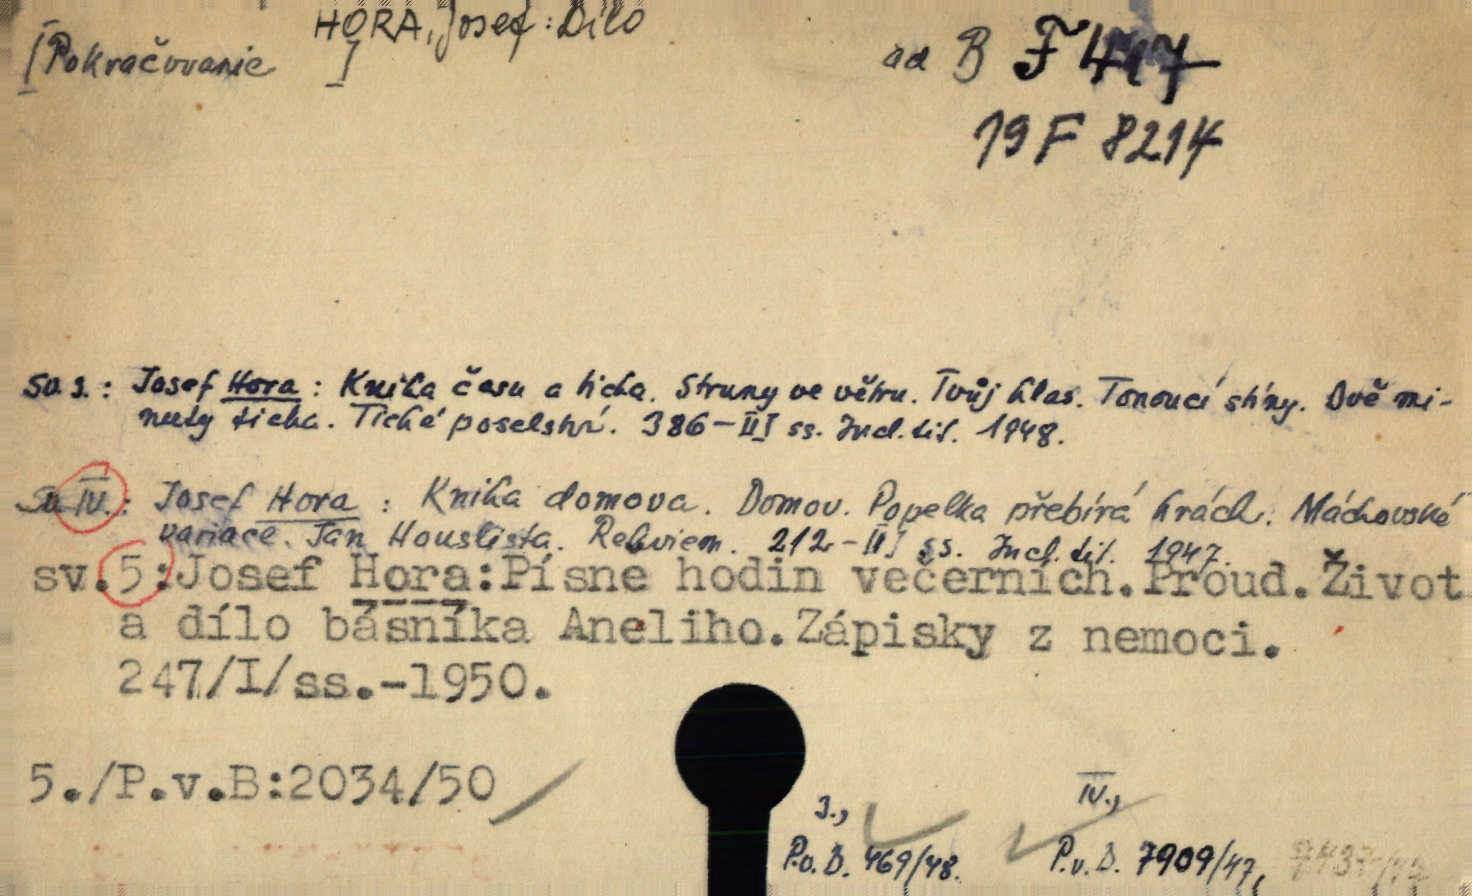 HORA, Josef: Dílo
[Pokračovanie ]
ad B F 417
19 F 8214
Sv. 3.: Josef Hora: Kniha času a ticha. Struny ve větru. Tvůj hlas. Tonoucí stíny. Dvě mi-
nuty ticha. Tiché poselství. 386-III ss. Incl. tit. 1948.
Sv. IV.: Josef Hora: Kniha domova. Domov. Popelka přebírá hrách. Máchovské
variace. Jan Houslista. Rekviem. 212-III ss. Incl. tit. 1947.
sv.5:Josef Hora:Písne hodin večerních.Proud.Život
a dílo básníka Aneliho.Zápisky z nemoci.
247/I/ss.-1950.
5./P.v.B:2034/50
3., IV.,
P.v.B. 469/48. P.v.B. 7909/47,